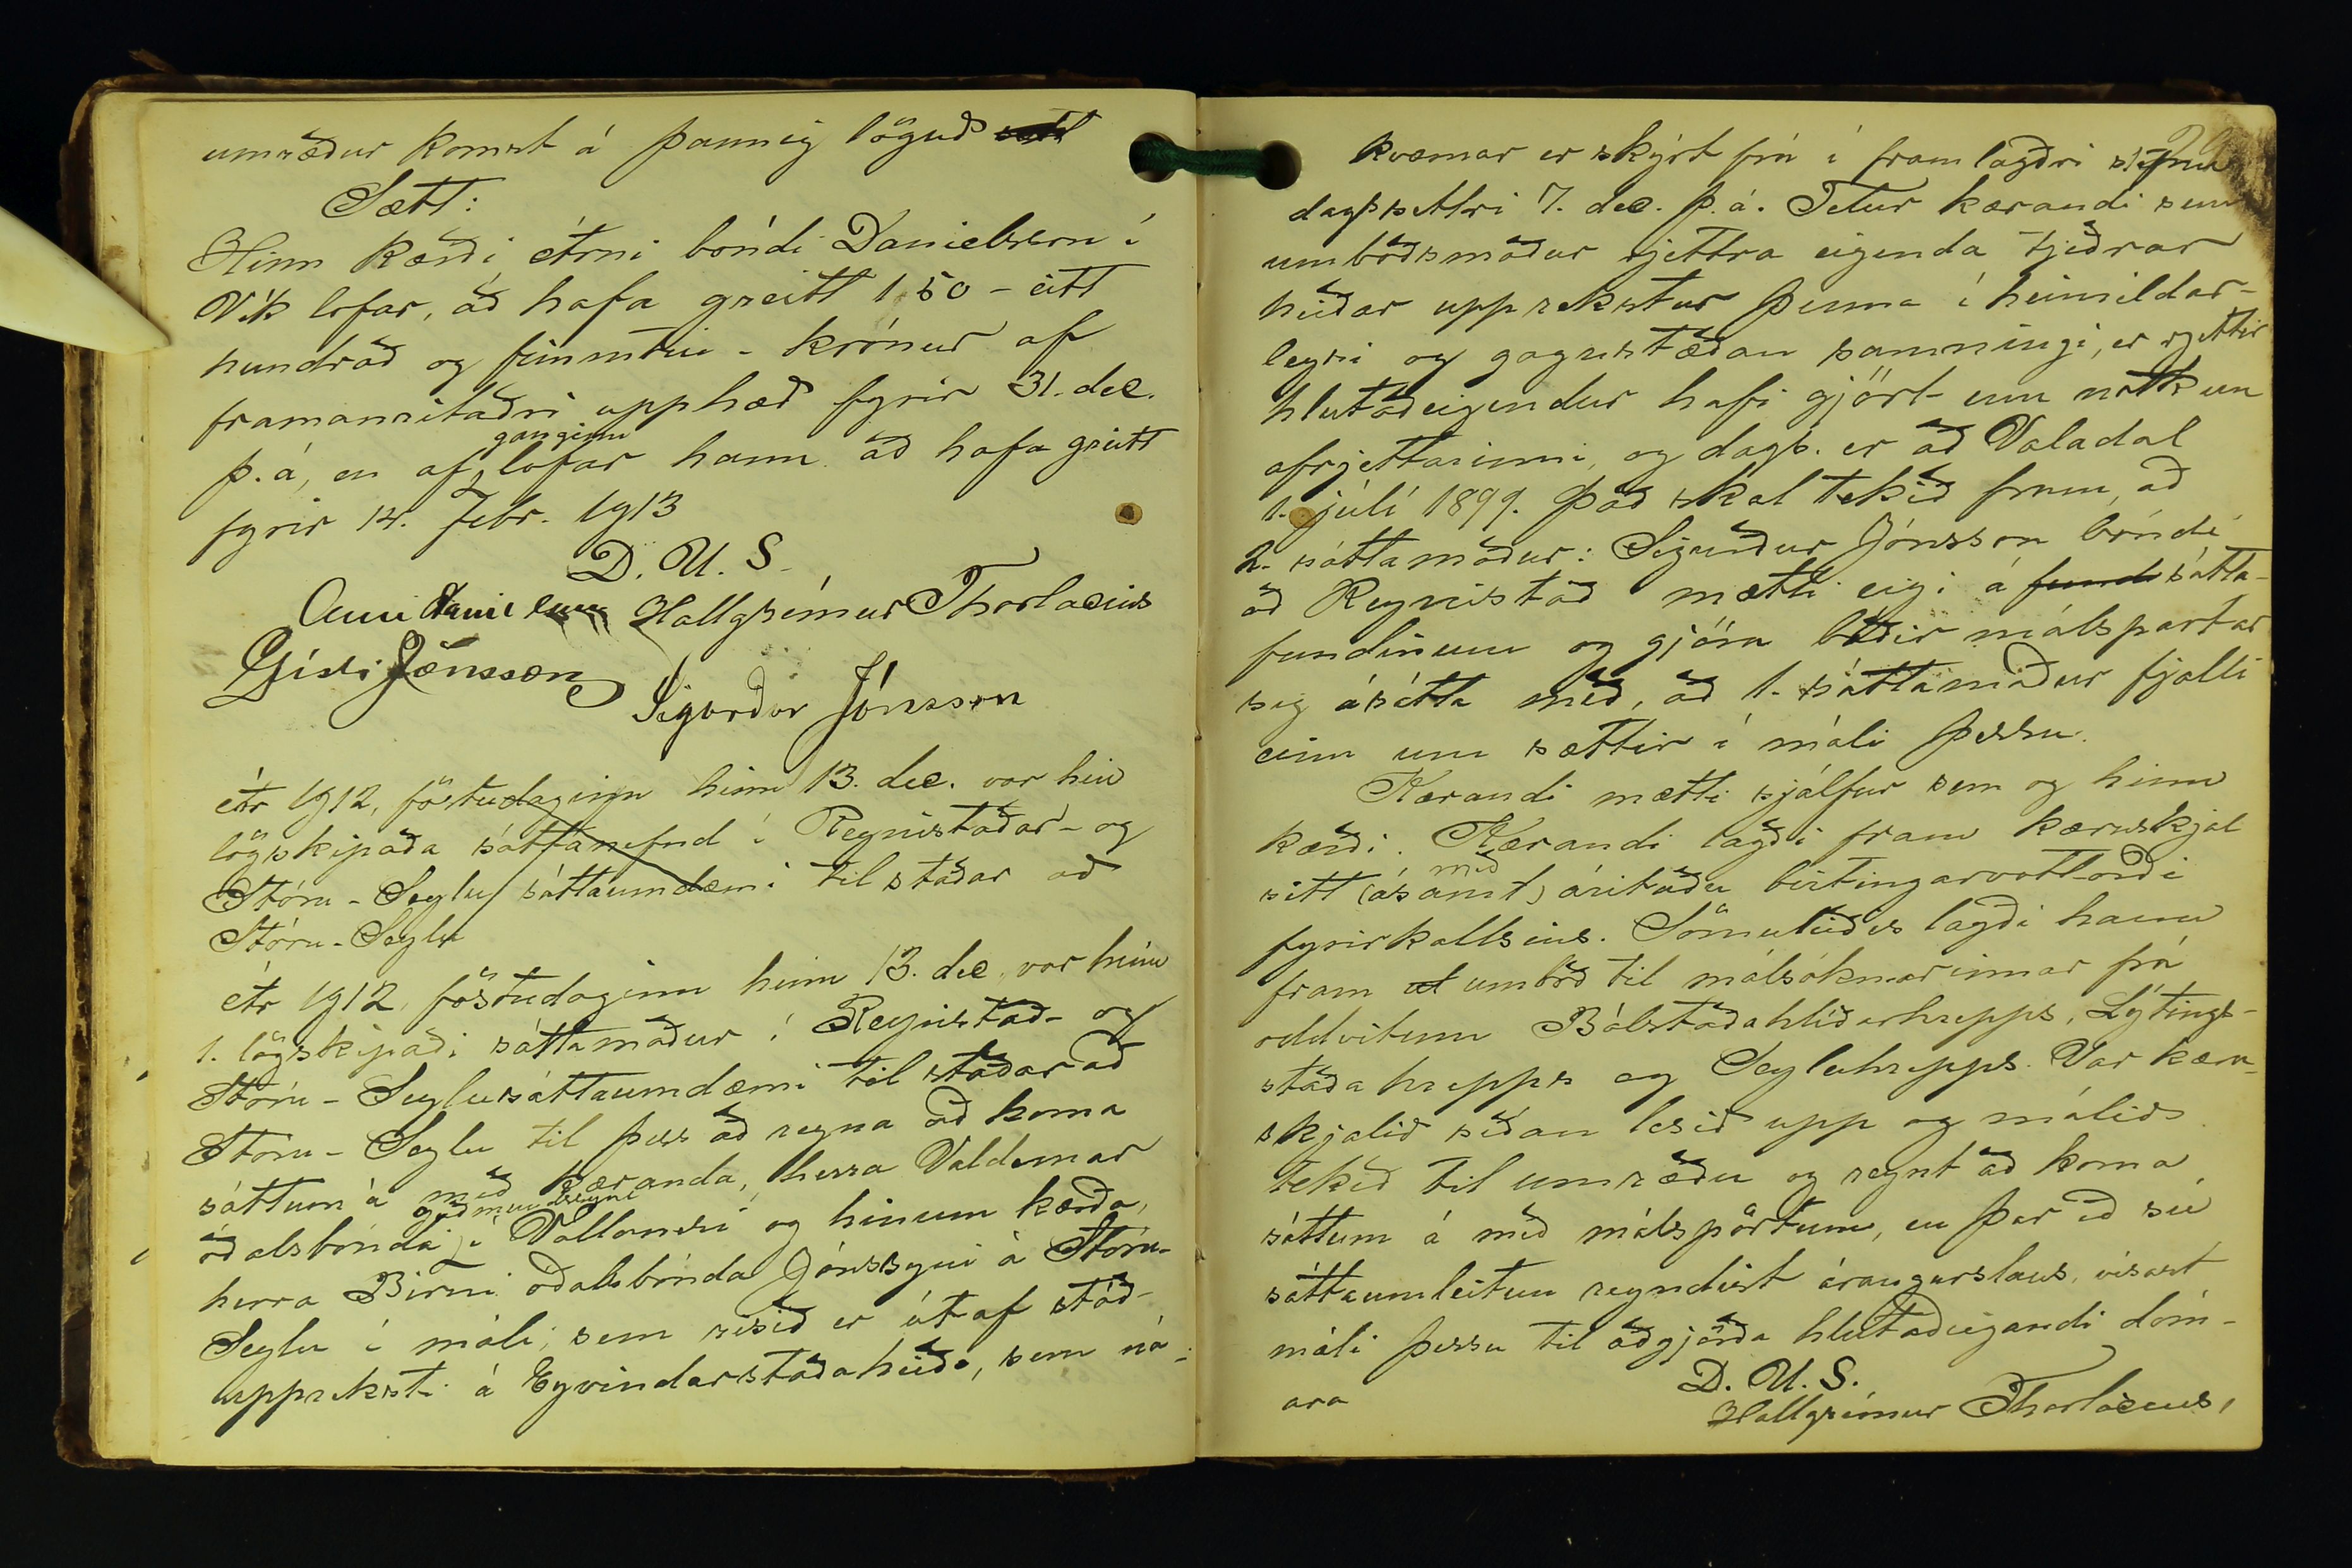 umræður komst á þannig löguð
Sætt:
Hinn kærði Árni bóndi Danielsson í
Vík lofar, að hafa greitt 150 - eitt
hundrað og fimmtíu - krónur af
framanritaðri upphæð fyrir 31. dec.
þ. á, en afganginn lofar hann að hafa greitt
fyrir 14. febr. 1913
D. U. S.
Arni Danielsson Hallgrímur Thorlacius
Gísli Jónsson
Sigurður Jónsson
Ár 1912, föstudaginn hinn 13. dec. var hin
lögskipaða sáttanefnd í Reynistaðar- og
Stóru-Seylu sáttaumdæmi til staðar að
Stóru-Seylu
Ár 1912, föstudaginn hinn 13. dec. var hinn
1. lögskipaði sáttamaður í Reynistað- og
Stóru-Seylusáttaumdæmi til staðar að
Stóru-Seylu til þess að reyna að koma
sáttum á með kæranda, herra Valdemar
óðalsbónda Guðmundssyni í Vallanesi og hinum kærða,
herra Birni óðalsbónda Jónssyni á Stóru-
Seylu í máli, sem risið er út af stóð-
upprekstri á Eyvindarstaðaheiði, sem ná-
kvæmar er skýrt frá í framlagðri stefnu
dagssettri 7. dec. þ. á. Telur kærandi sem
umboðsmaður rjettra eigenda tjeðrar
heiðar upprekstur þenna í heimildar-
leysi og gagnstæðan samningi, er rjettir
hlutaðeigendur hafi gjört um notkun
afrjettarinni, og dags. er að Valadal
1. júlí 1899. Það skal tekið fram, að
2. sáttamaður: Sigurður Jónsson bóndi
að Reynistað mætti eigi á fundi sátta-
fundinum og gjöra báðir málspartar
sig ásátta með, að 1. sáttamaður fjalli
einn um sættir í máli þessu.
Kærandi mætti sjálfur sem og hinn
kærði. Kærandi lagði fram kæruskjal
sitt (ásamt) með árituðu birtingarvottorði
fyrirkallsins. Sömuleiðis lagði hann
fram umboð til málsóknarinnar frá
oddvitum Bólstaðahlíðarhrepps, Lýtings-
staðahrepps og Seyluhrepps. Var kæru-
skjalið síðan lesið upp og málið
tekið til umræðu og reynt að koma
sáttum á með málspörtum, en þar eð sú
sáttaumleitun reyndist árangurslaus, vísast
máli þessu til aðgjörða hlutaðeigandi dóm-
ara
D. U. S.
Hallgrímur Thorlacius,